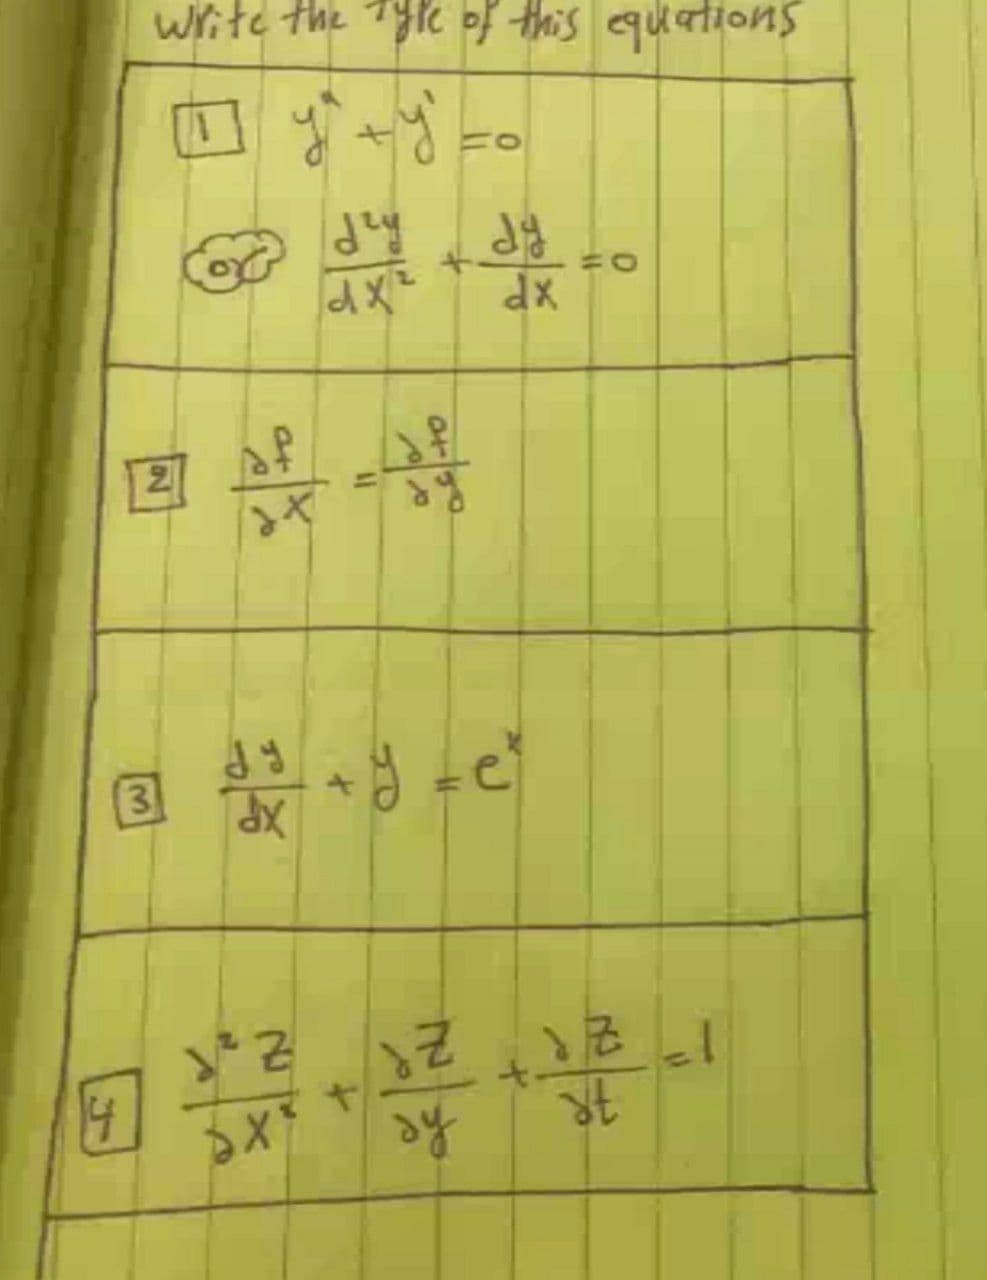 Write the Type of this equations
1 y" + y' = 0
or d²y/dx² + dy/dx = 0
2 ∂f/∂x = ∂f/∂y
3 dy/dx + y = eˣ
4 ∂²Z/∂x² + ∂Z/∂y + ∂Z/∂t = 1